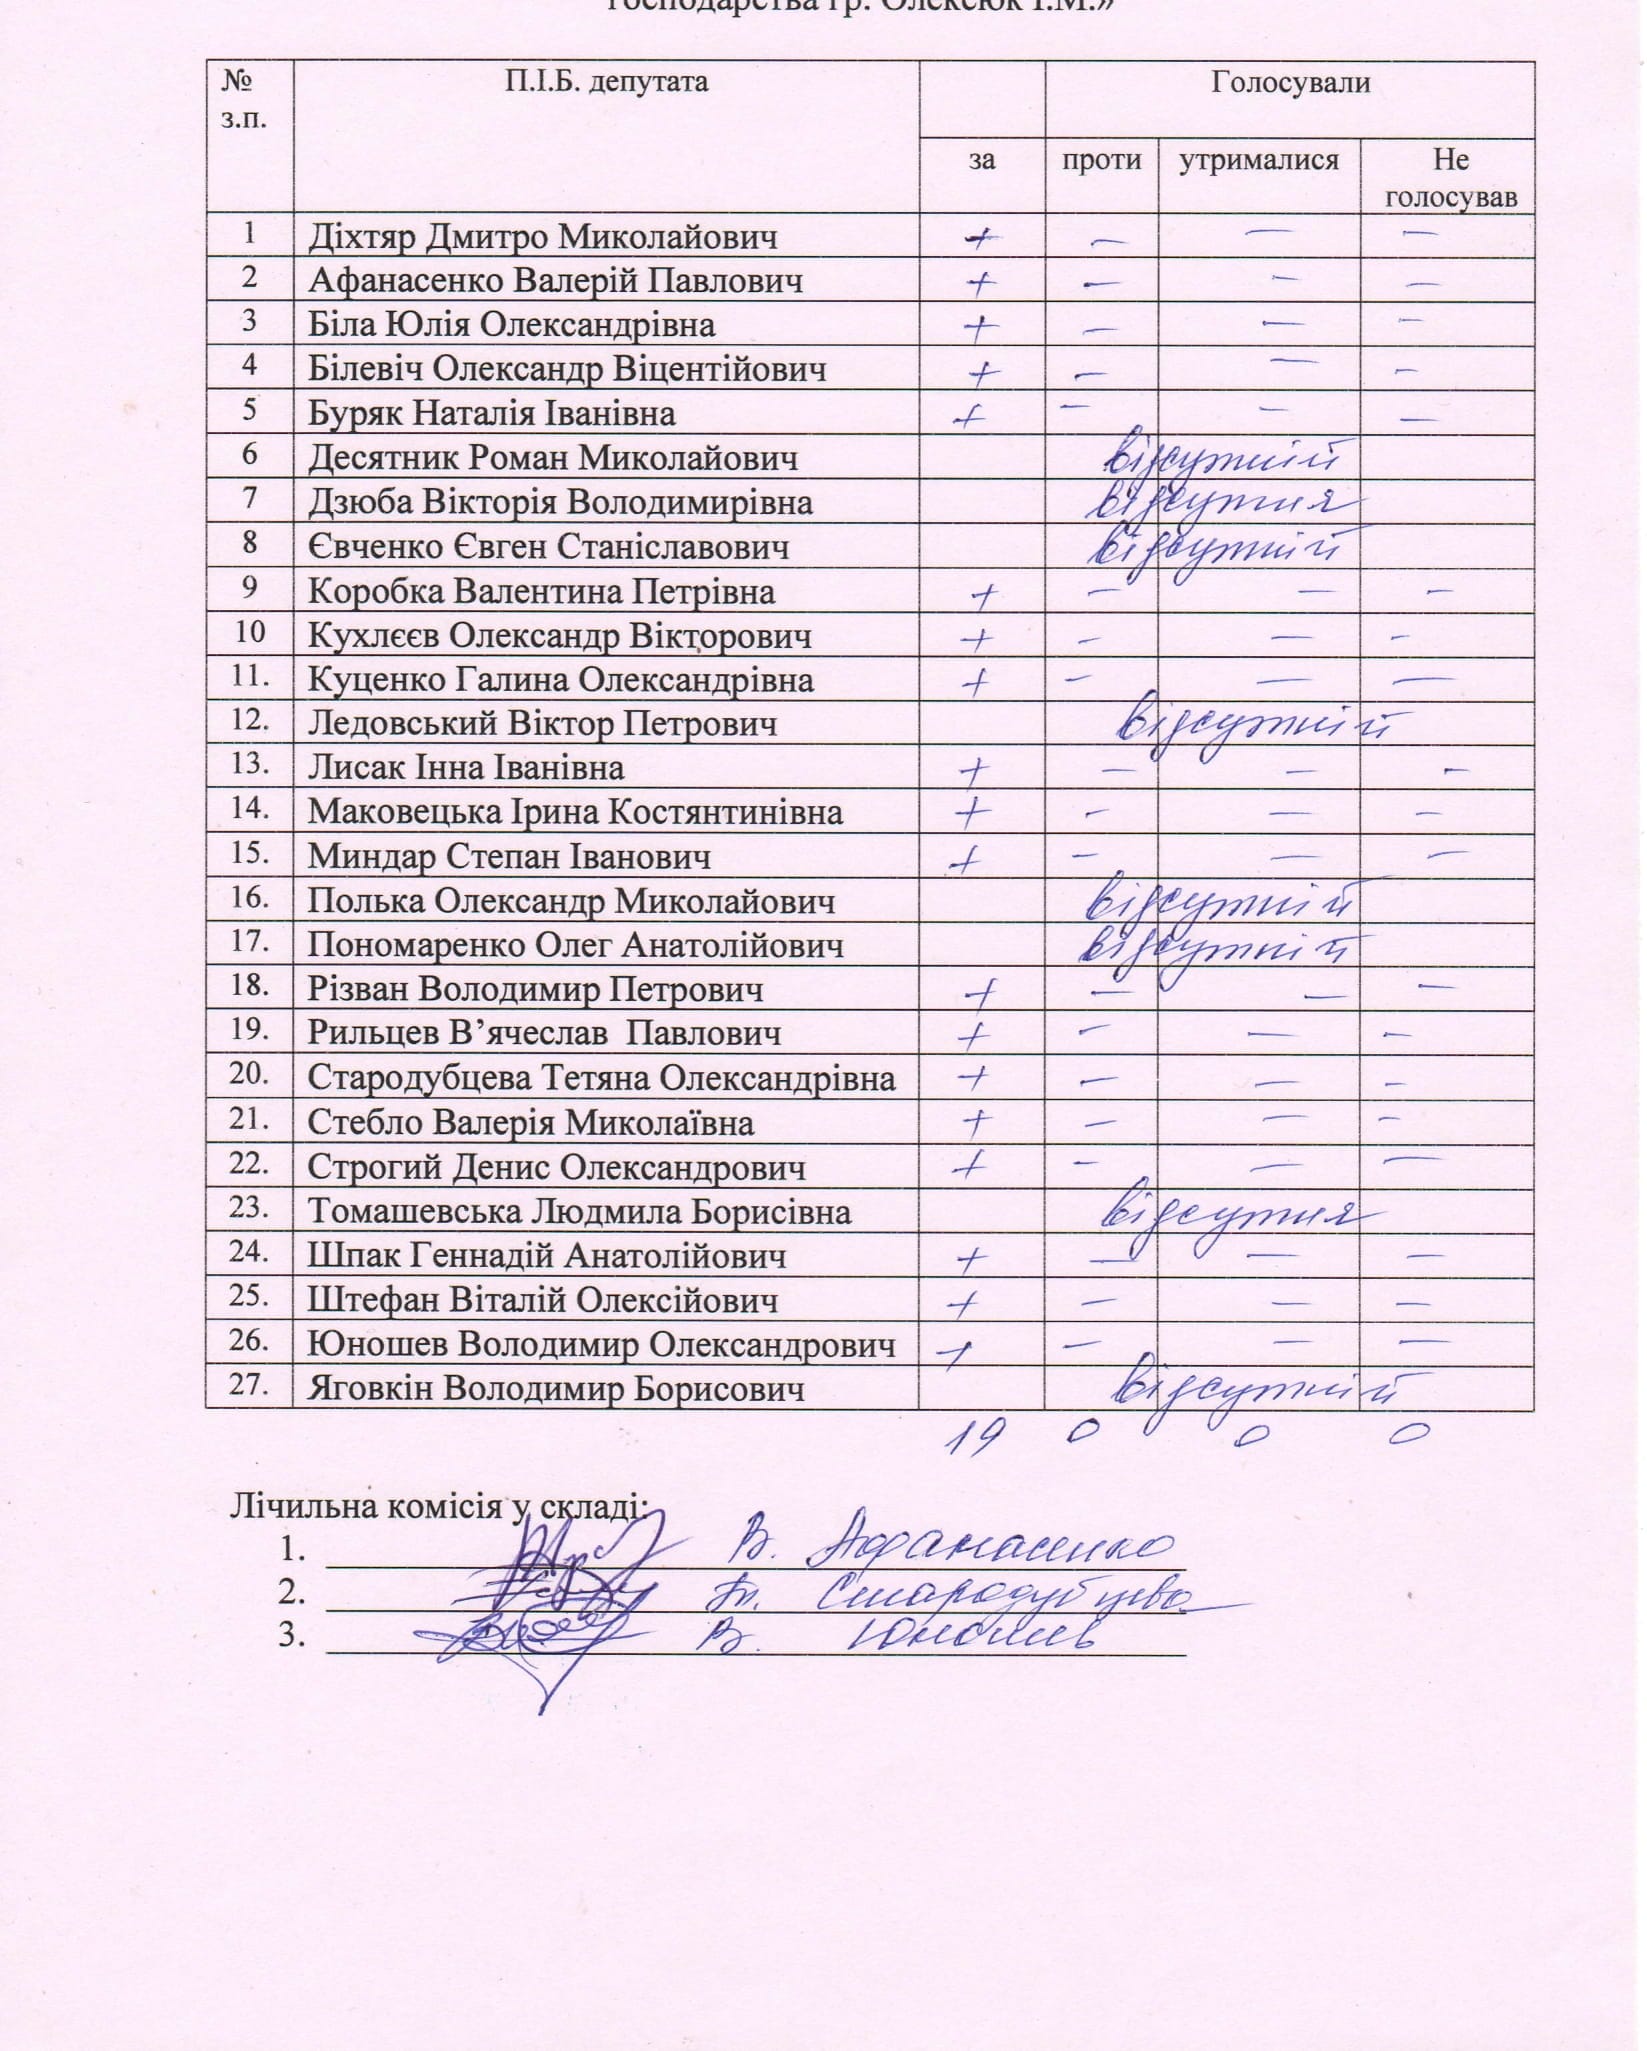 господарства гр. Олексюк І.М.»
№ з.п. П.І.Б. депутата Голосували
за проти утрималися Не голосував
1 Діхтяр Дмитро Миколайович + – – –
2 Афанасенко Валерій Павлович + – – –
3 Біла Юлія Олександрівна + – – –
4 Білевіч Олександр Віцентійович + – – –
5 Буряк Наталія Іванівна + – – –
6 Десятник Роман Миколайович відсутній
7 Дзюба Вікторія Володимирівна відсутня
8 Євченко Євген Станіславович відсутній
9 Коробка Валентина Петрівна + – – –
10 Кухлєєв Олександр Вікторович + – – –
11. Куценко Галина Олександрівна + – – –
12. Ледовський Віктор Петрович відсутній
13. Лисак Інна Іванівна + – – –
14. Маковецька Ірина Костянтинівна + – – –
15. Миндар Степан Іванович + – – –
16. Полька Олександр Миколайович відсутній
17. Пономаренко Олег Анатолійович відсутній
18. Різван Володимир Петрович + – – –
19. Рильцев В’ячеслав Павлович + – – –
20. Стародубцева Тетяна Олександрівна + – – –
21. Стебло Валерія Миколаївна + – – –
22. Строгий Денис Олександрович + – – –
23. Томашевська Людмила Борисівна відсутня
24. Шпак Геннадій Анатолійович + – – –
25. Штефан Віталій Олексійович + – – –
26. Юношев Володимир Олександрович + – – –
27. Яговкін Володимир Борисович відсутній
19 0 0 0
Лічильна комісія у складі:
1. В. Афанасенко
2. Т. Стародубцева
3. В. Юношев